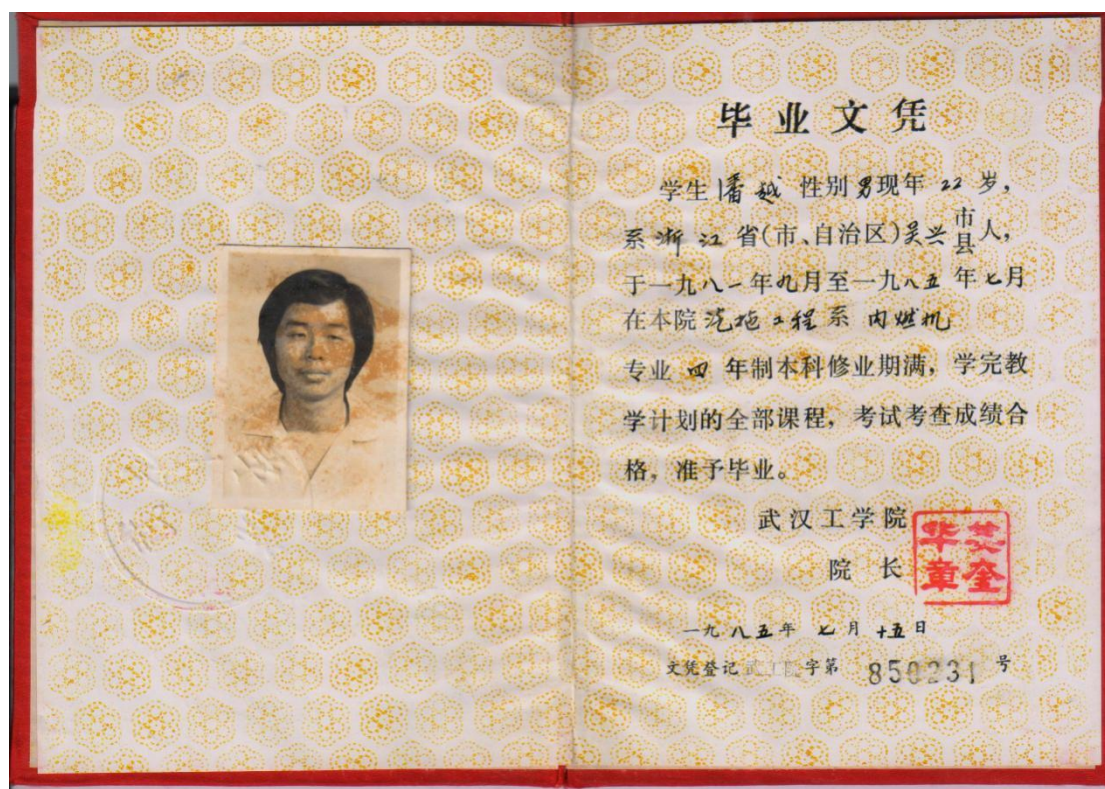 毕业文凭
学生潘越 性别男现年22岁，
系浙江省(市、自治区)吴兴市县人，
于一九八一年九月至一九八五年七月
在本院汽拖工程系内燃机
专业四年制本科修业期满，学完教
学计划的全部课程，考试考查成绩合
格，准予毕业。
武汉工学院
院长
一九八五年七月十五日
文凭登记武工院字第850231号